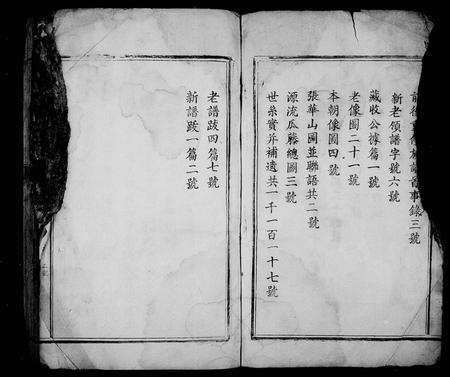 前後重修族譜首事錄三號
新老領譜字號六號
藏收公據篇一號
老像圖二十一號
本朝像圖四號
張華山圖並聯語共二號
源流瓜藤總圖三號
世系實并補遺共一千一百一十七號
老譜跋四篇七號
新譜跋一篇二號